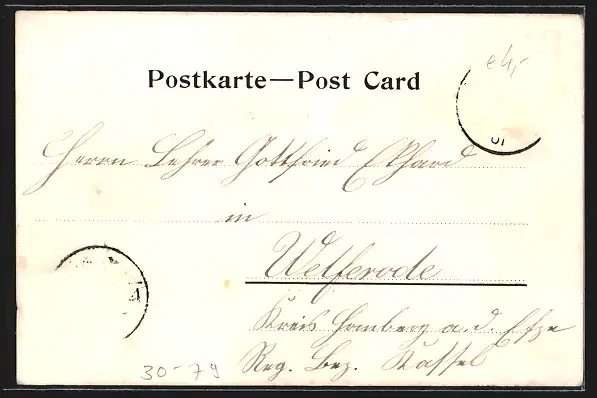 e4,-
Postkarte—Post Card
Herrn Lehrer Gottfried Ekhard
in
Welferode
Kreis Homberg a. d. Efze
Reg. Bez. Kassel
30-79